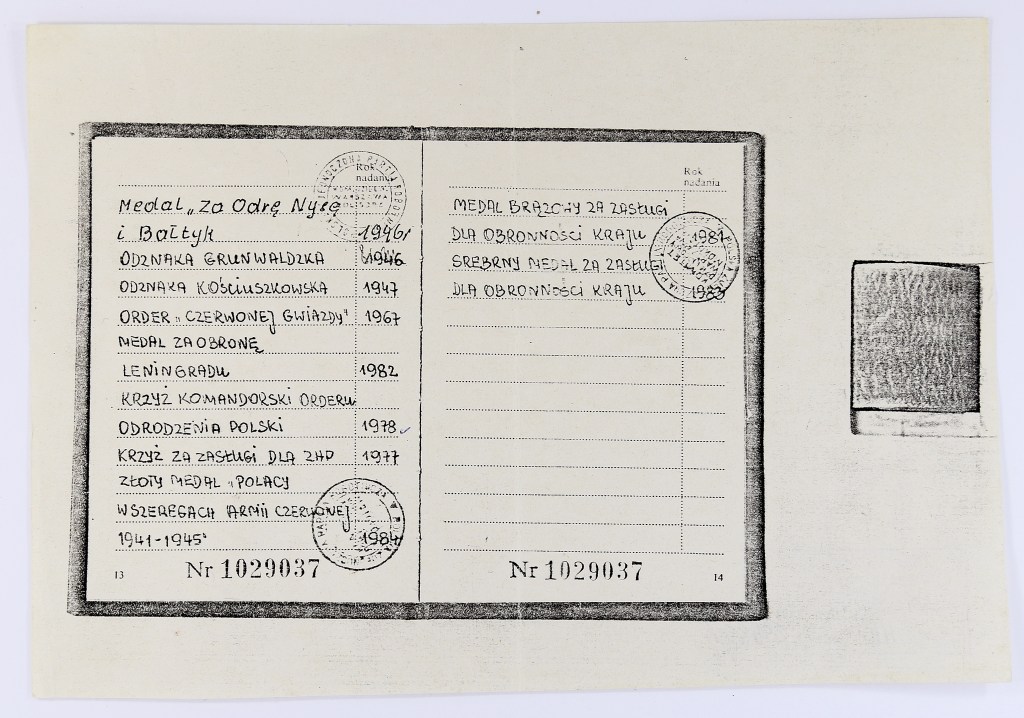 Rok
nadania
Medal „Za Odrę Nysę
i Bałtyk 1946r
ODZNAKA GRUNWALDZKA 1946
ODZNAKA KOŚCIUSZKOWSKA 1947
ORDER „CZERWONEJ GWIAZDY" 1967
MEDAL ZA OBRONĘ
LENINGRADU 1982
KRZYŻ KOMANDORSKI ORDERU
ODRODZENIA POLSKI 1978
KRZYŻ ZA ZASŁUGI DLA ZHP 1977
ZŁOTY MEDAL „POLACY
WSZEREGACH ARMII CZERWONEJ
1941-1945" 1984
13 Nr 1029037
Rok
nadania
MEDAL BRĄZOWY ZA ZASŁUGI
DLA OBRONNOŚCI KRAJU 1981
SREBRNY MEDAL ZA ZASŁUGI
DLA OBRONNOŚCI KRAJU 1983
Nr 1029037 14